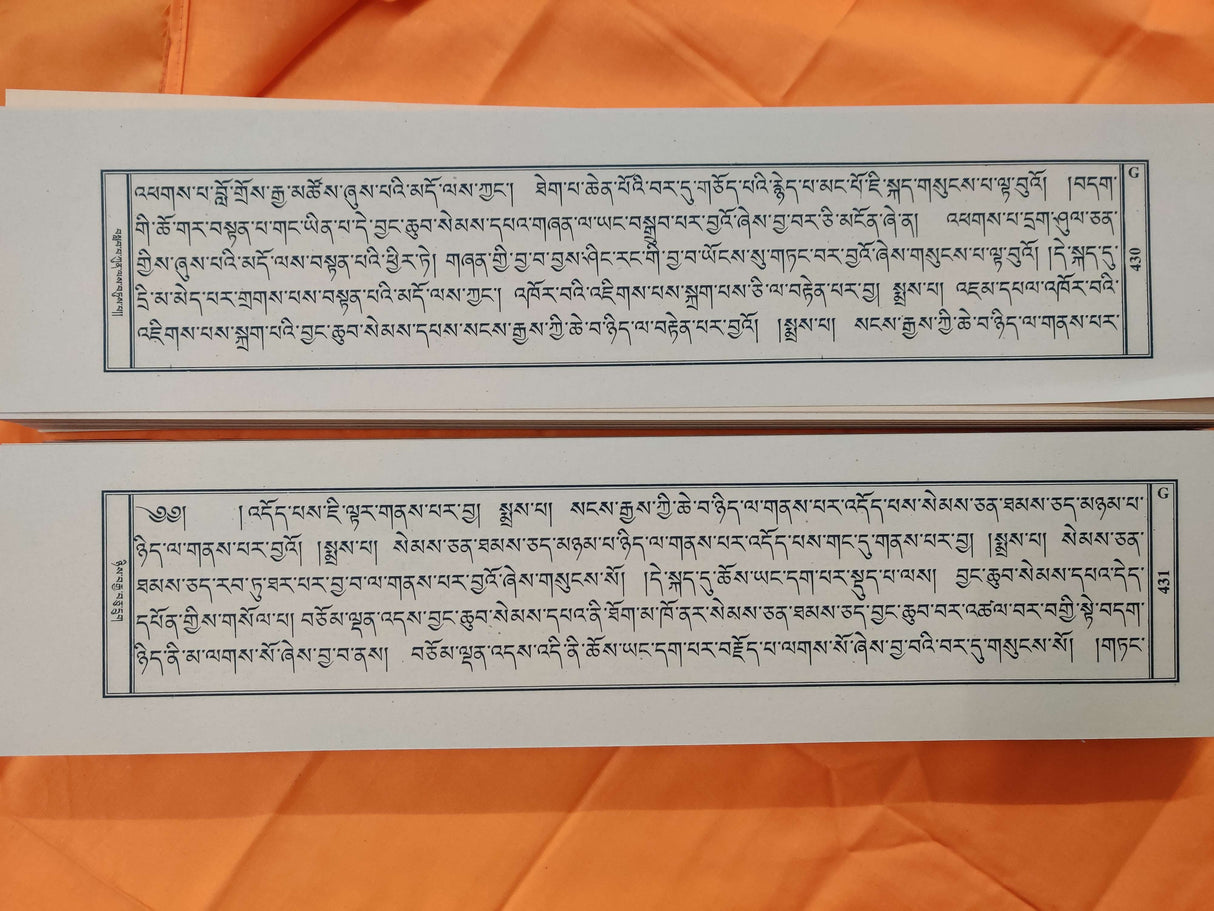 འཕགས་པ་བློ་གྲོས་རྒྱ་མཚོས་ཞུས་པའི་མདོ་ལས་ཀྱང་། ཐེག་པ་ཆེན་པོའི་བར་དུ་གཅོད་པའི་རྙེད་པ་མང་པོ་ཇི་སྐད་གསུངས་པ་ལྟ་བུའོ། །བདག་
གི་ཆོ་གར་བསྟན་པ་གང་ཡིན་པ་དེ་བྱང་ཆུབ་སེམས་དཔའ་གཞན་ལ་ཡང་བསྒྲུབ་པར་བྱའོ་ཞེས་བྱ་བར་ཅི་མངོན་ཞེ་ན། འཕགས་པ་དྲག་ཤུལ་ཅན་
གྱིས་ཞུས་པའི་མདོ་ལས་བསྟན་པའི་ཕྱིར་ཏེ། གཞན་གྱི་བྱ་བ་བྱས་ཤིང་རང་གི་བྱ་བ་ཡོངས་སུ་གཏང་བར་བྱའོ་ཞེས་གསུངས་པ་ལྟ་བུའོ། །དེ་སྐད་དུ་
དྲི་མ་མེད་པར་གྲགས་པས་བསྟན་པའི་མདོ་ལས་ཀྱང་། འཁོར་བའི་འཇིགས་པས་སྐྲག་པས་ཅི་ལ་བརྟེན་པར་བྱ། སྨྲས་པ། འཇམ་དཔལ་འཁོར་བའི་
འཇིགས་པས་སྐྲག་པའི་བྱང་ཆུབ་སེམས་དཔས་སངས་རྒྱས་ཀྱི་ཆེ་བ་ཉིད་ལ་བརྟེན་པར་བྱའོ། །སྨྲས་པ། སངས་རྒྱས་ཀྱི་ཆེ་བ་ཉིད་ལ་གནས་པར་
G
430
༄༅། །འདོད་པས་ཇི་ལྟར་གནས་པར་བྱ། སྨྲས་པ། སངས་རྒྱས་ཀྱི་ཆེ་བ་ཉིད་ལ་གནས་པར་འདོད་པས་སེམས་ཅན་ཐམས་ཅད་མཉམ་པ་
ཉིད་ལ་གནས་པར་བྱའོ། །སྨྲས་པ། སེམས་ཅན་ཐམས་ཅད་མཉམ་པ་ཉིད་ལ་གནས་པར་འདོད་པས་གང་དུ་གནས་པར་བྱ། །སྨྲས་པ། སེམས་ཅན་
ཐམས་ཅད་རབ་ཏུ་ཐར་པར་བྱ་བ་ལ་གནས་པར་བྱའོ་ཞེས་གསུངས་སོ། །དེ་སྐད་དུ་ཆོས་ཡང་དག་པར་སྡུད་པ་ལས། བྱང་ཆུབ་སེམས་དཔའ་དེད་
དཔོན་གྱིས་གསོལ་པ། བཅོམ་ལྡན་འདས་བྱང་ཆུབ་སེམས་དཔའ་ནི་ཐོག་མ་ཁོ་ནར་སེམས་ཅན་ཐམས་ཅད་བྱང་ཆུབ་བར་འཚལ་བར་བགྱི་སྟེ་བདག་
ཉིད་ནི་མ་ལགས་སོ་ཞེས་བྱ་བ་ནས། བཅོམ་ལྡན་འདས་འདི་ནི་ཆོས་ཡང་དག་པར་བརྗོད་པ་ལགས་སོ་ཞེས་བྱ་བའི་བར་དུ་གསུངས་སོ། །གཏང་
G
431